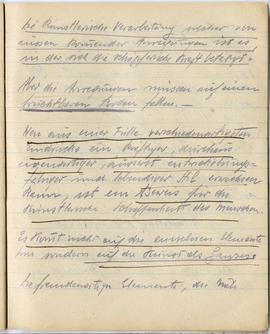 Die künstlerische Verarbeitung solcher von
aussen kommender Anregungen ist es
in der sich die schöpferische Kraft betätigt.
Aber die Anregungen müssen auf einen
fruchtbaren Boden fallen. —
Wenn aus einer Fülle verschiedenartigster
Eindrücke ein kräftiger, durchaus
eigenartiger, äusserst entwicklungs-
fähiger und lebendiger Stil erwachsen
kann, ist ein Beweis für die
künstlerische Schaffenskraft des Menschen.
Es kommt nicht auf die einzelnen Elemente
an sondern auf die Kunst als Ganzes
Die fremdartigen Elemente, die